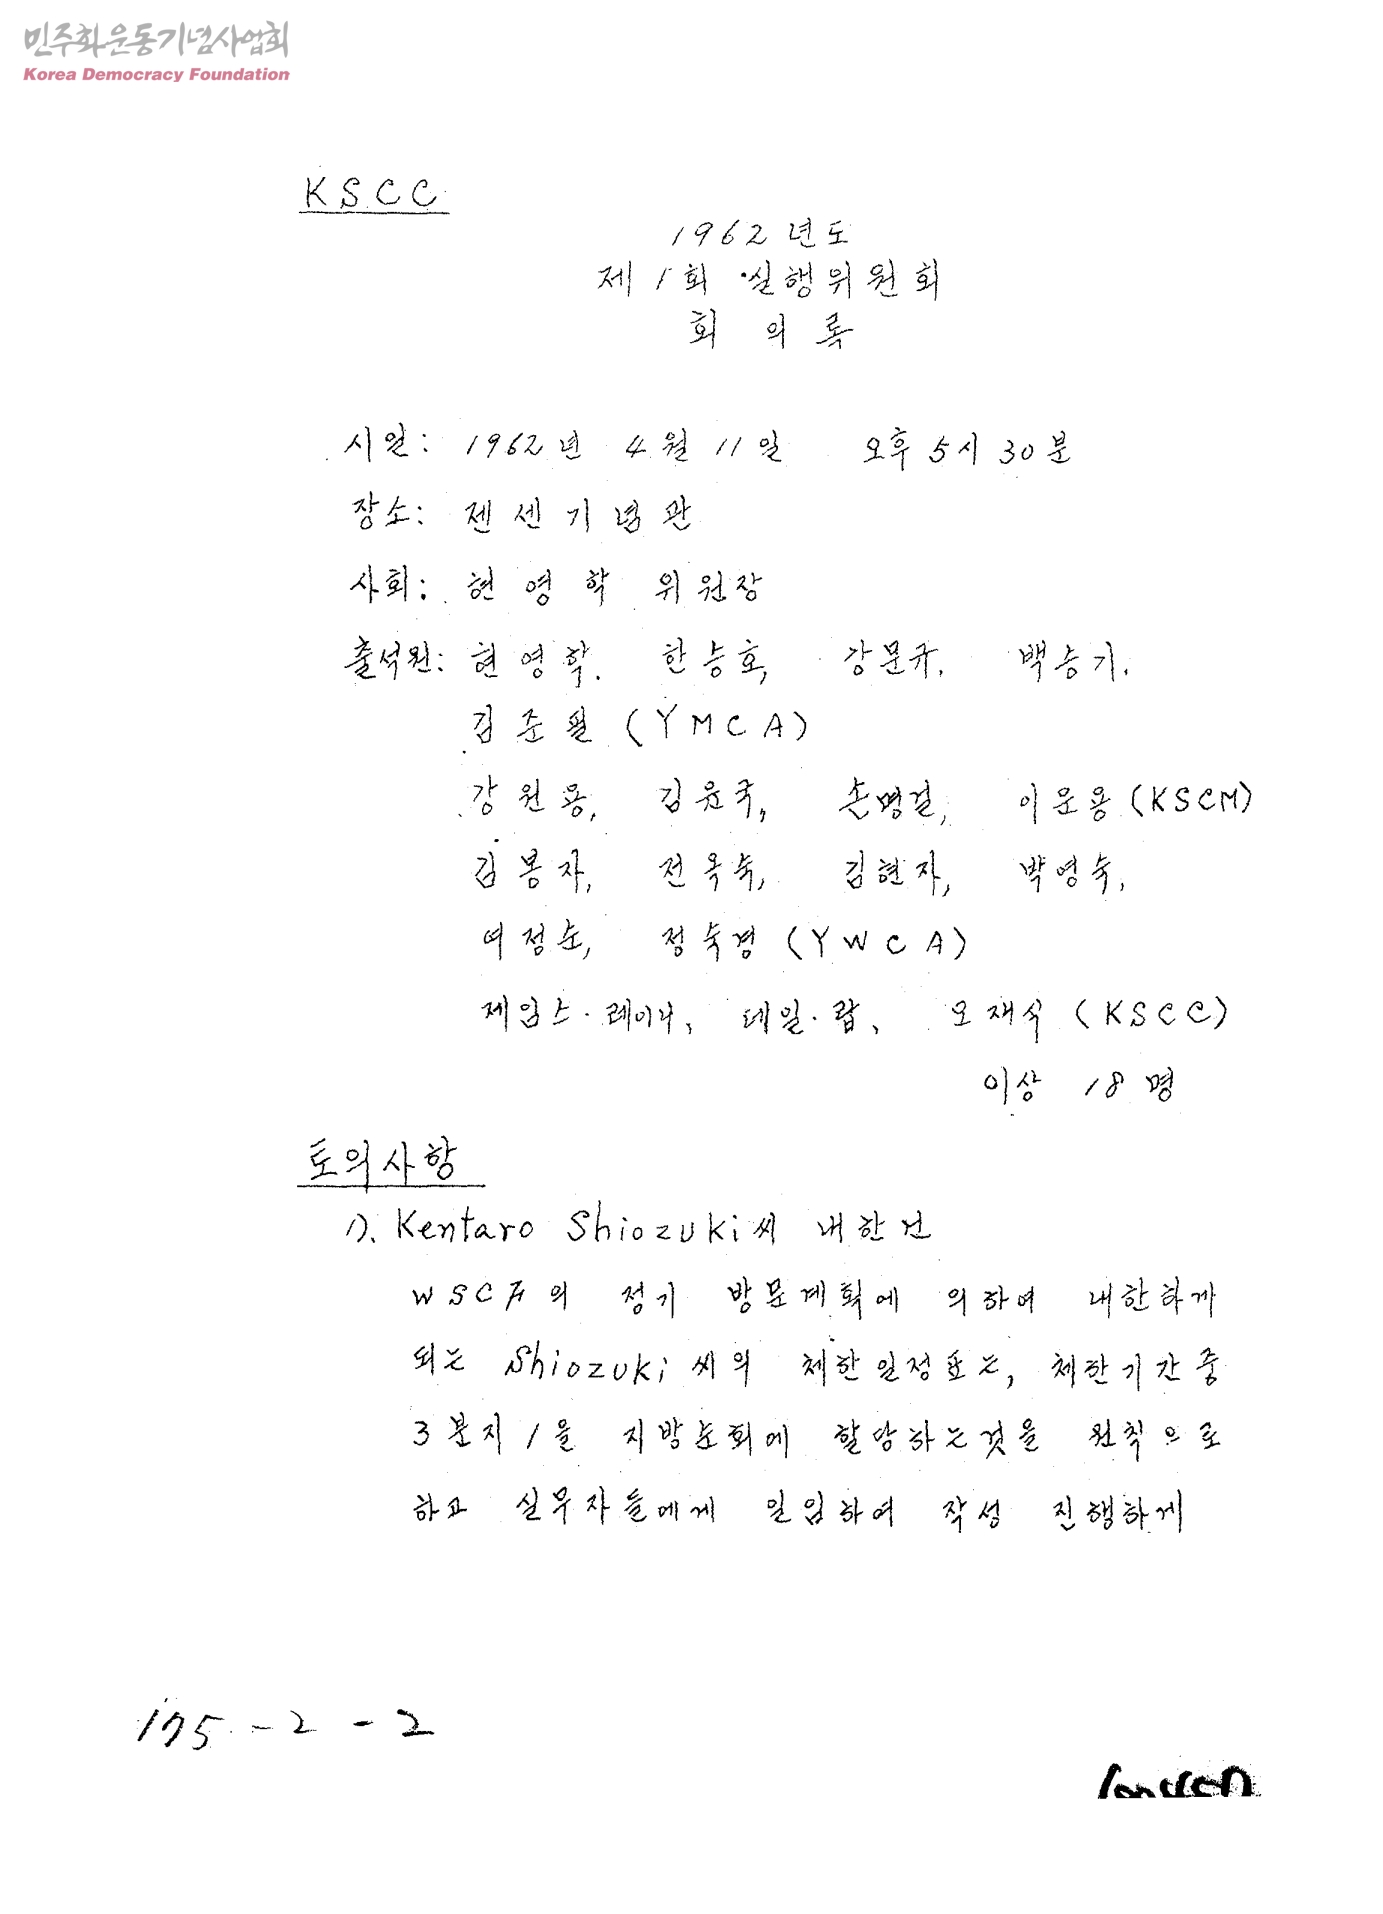 민주화운동기념사업회
Korea Democracy Foundation
KSCC
1962년도
제1회 실행위원회
회의록
시일: 1962년 4월 11일 오후 5시 30분
장소: 젠센기념관
사회: 현영학 위원장
출석원: 현영학. 한승호, 강문규. 백승기.
김준필 (YMCA)
강원용, 김윤국, 손명걸, 이운용 (KSCM)
김봉자, 전옥숙, 김현자, 박영숙,
여정순, 정숙경 (YWCA)
제임스·레이니, 데일·랍, 오재식 (KSCC)
이상 18명
토의사항
1). Kentaro Shiozuki씨 내한건
WSCF의 정기 방문계획에 의하여 내한하게
되는 Shiozuki씨의 체한일정표는, 체한기간중
3분지 1을 지방순회에 할당하는것을 원칙으로
하고 실무자들에게 일임하여 작성 진행하게
175-2-2